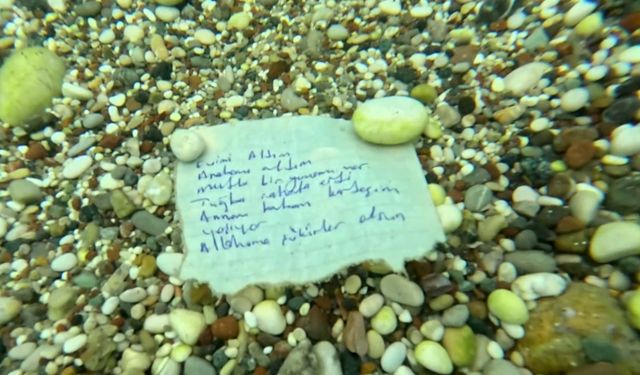 Evimi Aldım
Arabamı aldım
mutlu bir yuvam var.
Tuğba
Annem babam kardeşim
yaşıyor
Allahıma şükürler olsun